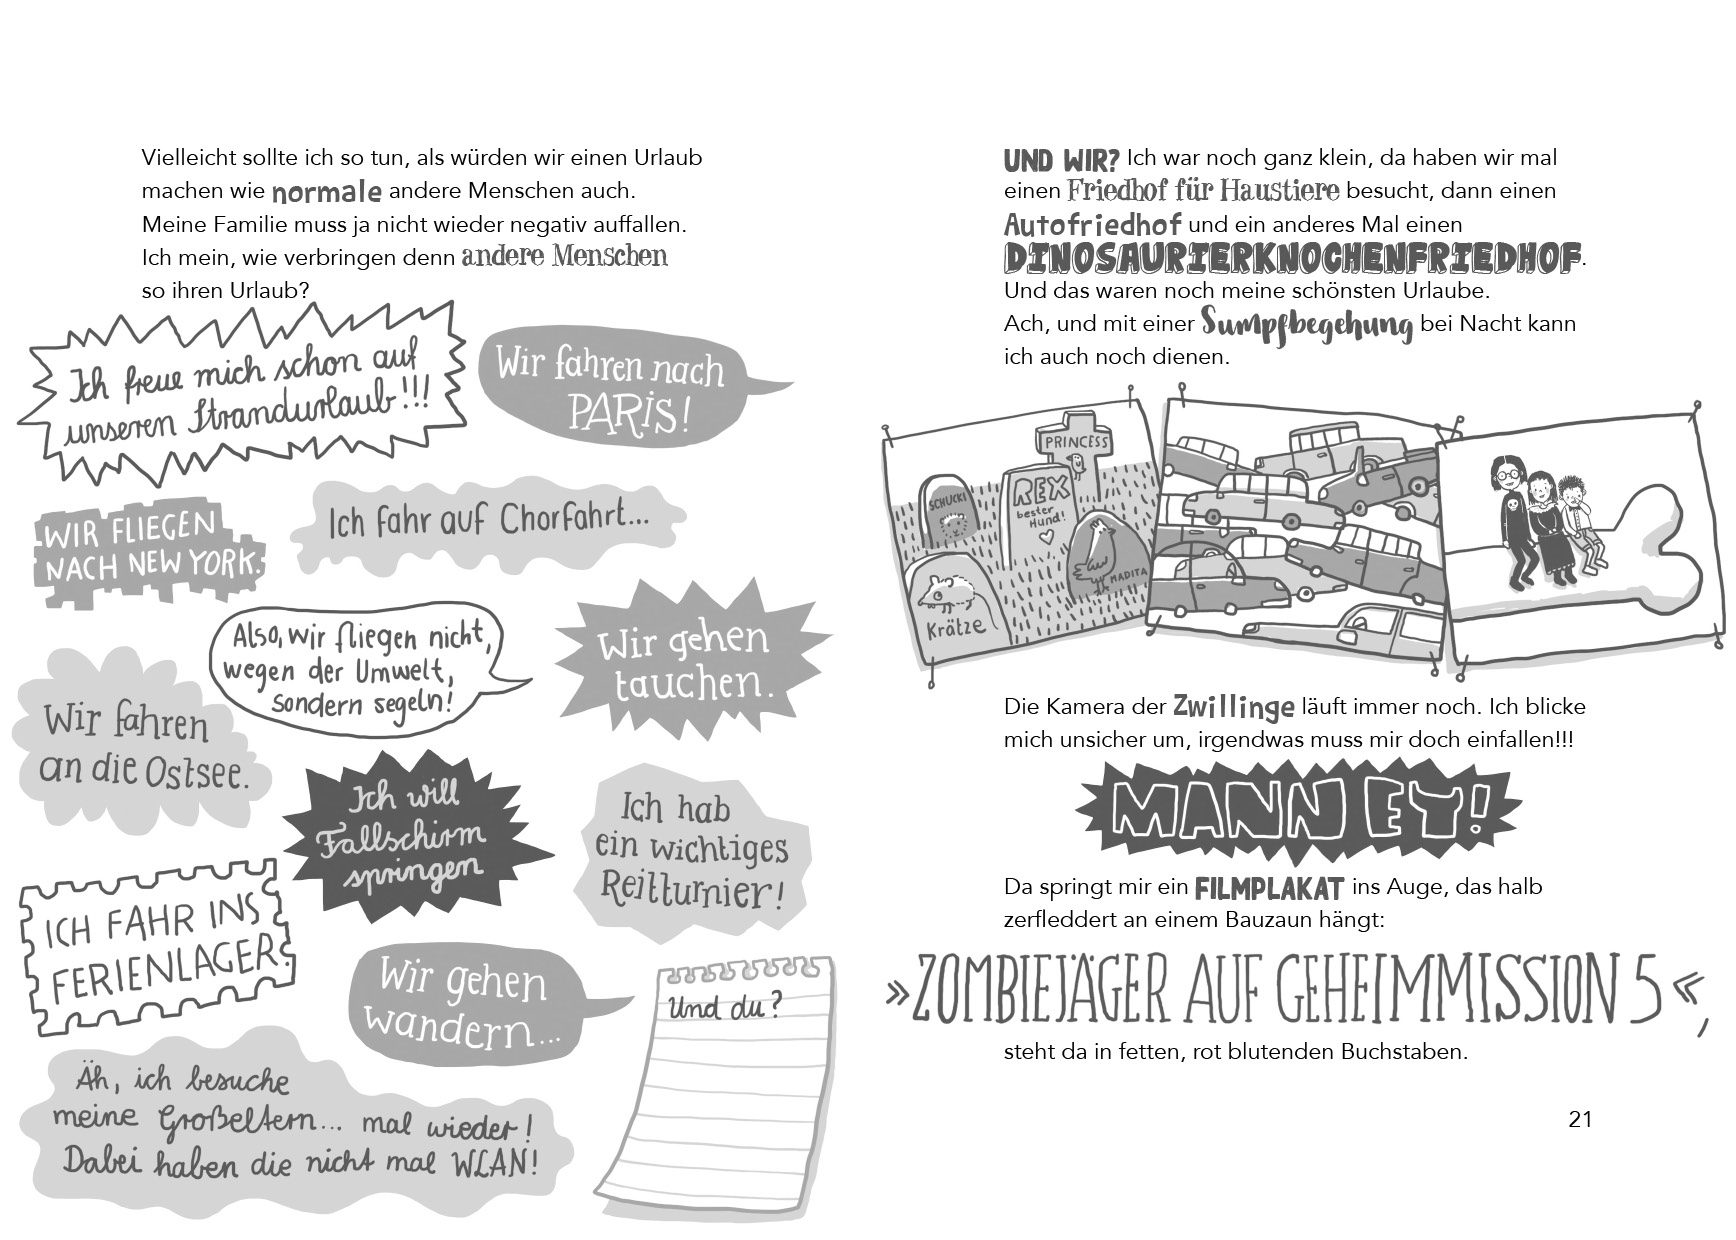 Vielleicht sollte ich so tun, als würden wir einen Urlaub
machen wie normale andere Menschen auch.
Meine Familie muss ja nicht wieder negativ auffallen.
Ich mein, wie verbringen denn andere Menschen
so ihren Urlaub?
Ich freue mich schon auf
unseren Strandurlaub!!!
Wir fahren nach
PARiS!
WIR FLIEGEN
NACH NEW YORK.
Ich fahr auf Chorfahrt...
Also, wir fliegen nicht,
wegen der Umwelt,
sondern segeln!
Wir gehen
tauchen.
Wir fahren
an die Ostsee.
Ich will
Fallschirm
springen
Ich hab
ein wichtiges
Reitturnier!
ICH FAHR INS
FERIENLAGER.
Wir gehen
wandern...
Und du?
Äh, ich besuche
meine Großeltern... mal wieder!
Dabei haben die nicht mal WLAN!
UND WIR? Ich war noch ganz klein, da haben wir mal
einen Friedhof für Haustiere besucht, dann einen
Autofriedhof und ein anderes Mal einen
DINOSAURIERKNOCHENFRIEDHOF.
Und das waren noch meine schönsten Urlaube.
Ach, und mit einer Sumpfbegehung bei Nacht kann
ich auch noch dienen.
PRINCESS
SCHUCKI
REX
bester
Hund!
MADITA
Krätze
Die Kamera der Zwillinge läuft immer noch. Ich blicke
mich unsicher um, irgendwas muss mir doch einfallen!!!
MANN EY!
Da springt mir ein FILMPLAKAT ins Auge, das halb
zerfleddert an einem Bauzaun hängt:
»ZOMBIEJÄGER AUF GEHEIMMISSION 5«,
steht da in fetten, rot blutenden Buchstaben.
21